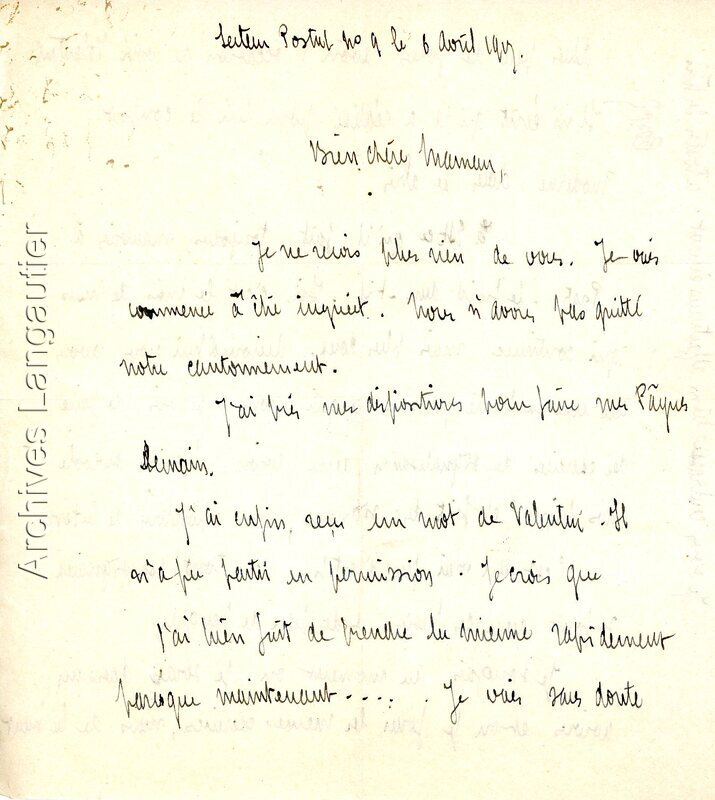 Secteur Postal No 9 le 6 Avril 1917.
Bien chère Maman,
Je ne reçois plus rien de vous. Je vais
commence à être inquiet. Nous n'avons pas quitté
notre cantonnement.
J'ai pris mes dispositions pour faire mes Pâques
Demain.
J'ai enfin reçu un mot de Valentin. Il
n'a pu partir en permission. Je crois que
j'ai bien fait de prendre la mienne rapidement
parceque maintenant..... Je vais sans doute
Archives Langautier